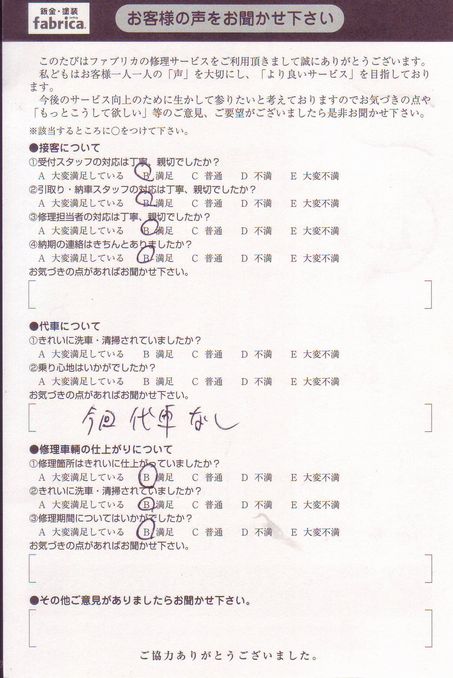 鈑金・塗装
fabrica.
お客様の声をお聞かせ下さい
このたびはファブリカの修理サービスをご利用頂きまして誠にありがとうございます。
私どもはお客様一人一人の「声」を大切にし、「より良いサービス」を目指しており
ます。
今後のサービス向上のために生かして参りたいと考えておりますのでお気づきの点や
「もっとこうして欲しい」等のご意見、ご要望がございましたら是非お聞かせ下さい。
※該当するところに○をつけて下さい。
●接客について
①受付スタッフの対応は丁寧、親切でしたか?
A 大変満足している B 満足 C 普通 D 不満 E 大変不満
②引取り・納車スタッフの対応は丁寧、親切でしたか?
A 大変満足している B 満足 C 普通 D 不満 E 大変不満
③修理担当者の対応は丁寧、親切でしたか?
A 大変満足している B 満足 C 普通 D 不満 E 大変不満
④納期の連絡はきちんとありましたか?
A 大変満足している B 満足 C 普通 D 不満 E 大変不満
お気づきの点があればお聞かせ下さい。
●代車について
①きれいに洗車・清掃されていましたか?
A 大変満足している B 満足 C 普通 D 不満 E 大変不満
②乗り心地はいかがでしたか?
A 大変満足している B 満足 C 普通 D 不満 E 大変不満
お気づきの点があればお聞かせ下さい。
今回 代車 なし
●修理車輌の仕上がりについて
①修理箇所はきれいに仕上がっていましたか?
A 大変満足している B 満足 C 普通 D 不満 E 大変不満
②きれいに洗車・清掃されていましたか?
A 大変満足している B 満足 C 普通 D 不満 E 大変不満
③修理期間についてはいかがでしたか?
A 大変満足している B 満足 C 普通 D 不満 E 大変不満
お気づきの点があればお聞かせ下さい。
●その他ご意見がありましたらお聞かせ下さい。
ご協力ありがとうございました。